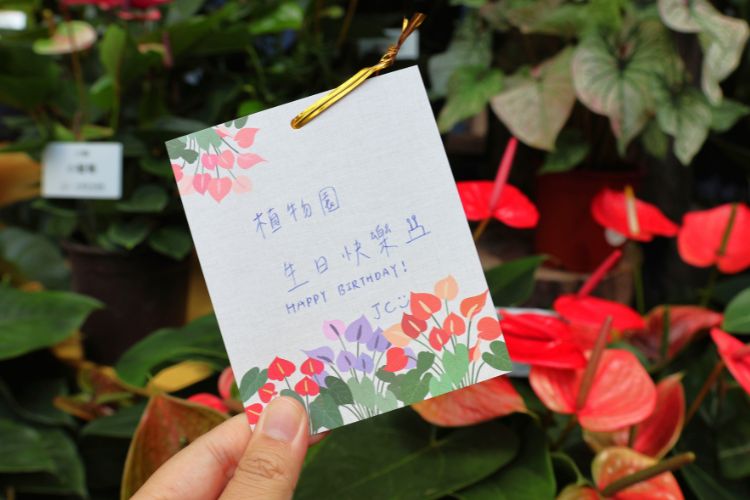 植物園
生日快樂
HAPPY BIRTHDAY!
JC